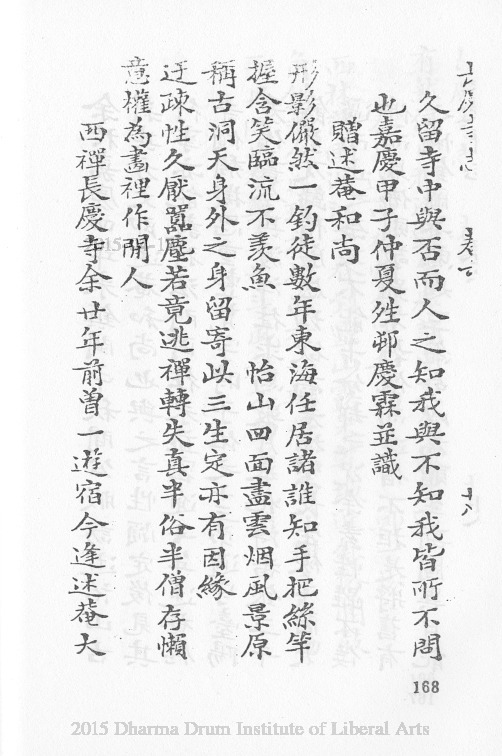 久留寺中與否而人之知我與不知我皆所不問
也嘉慶甲子仲夏姓邨慶霖並識
贈述菴和尚
形影儼然一釣徒數年東海任居諸誰知手把絲竿
握含笑臨流不羨魚　怡山四面盡雲烟風景原
稱古洞天身外之身留寄此三生定亦有因緣
迂疎性久厭囂塵若竟逃禪轉失真半俗半僧存懶
意權為畫裡作閒人
西禪長慶寺余廿年前曽一遊宿今逢述菴大
168
2015 Dharma Drum Institute of Liberal Arts